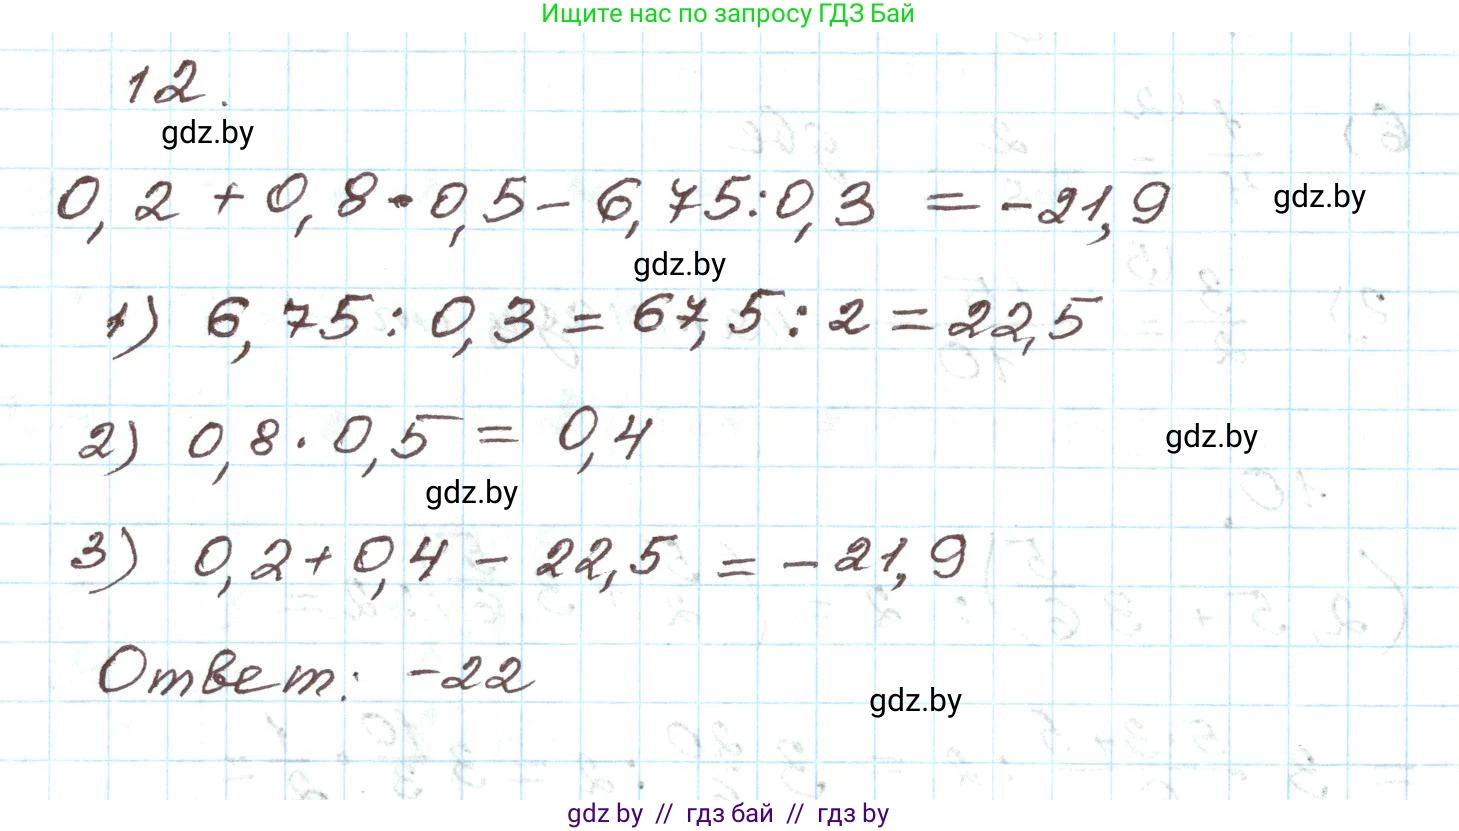 Ищите нас по запросу ГДЗ Бай
12.
gdz.by
0,2 + 0,8 · 0,5 - 6,75 : 0,3 = -21,9
gdz.by
gdz.by
1) 6,75 : 0,3 = 67,5 : 2 = 22,5
2) 0,8 · 0,5 = 0,4
gdz.by
gdz.by
3) 0,2 + 0,4 - 22,5 = -21,9
Ответ: -22
gdz.by
gdz.by // гдз бай // гдз by